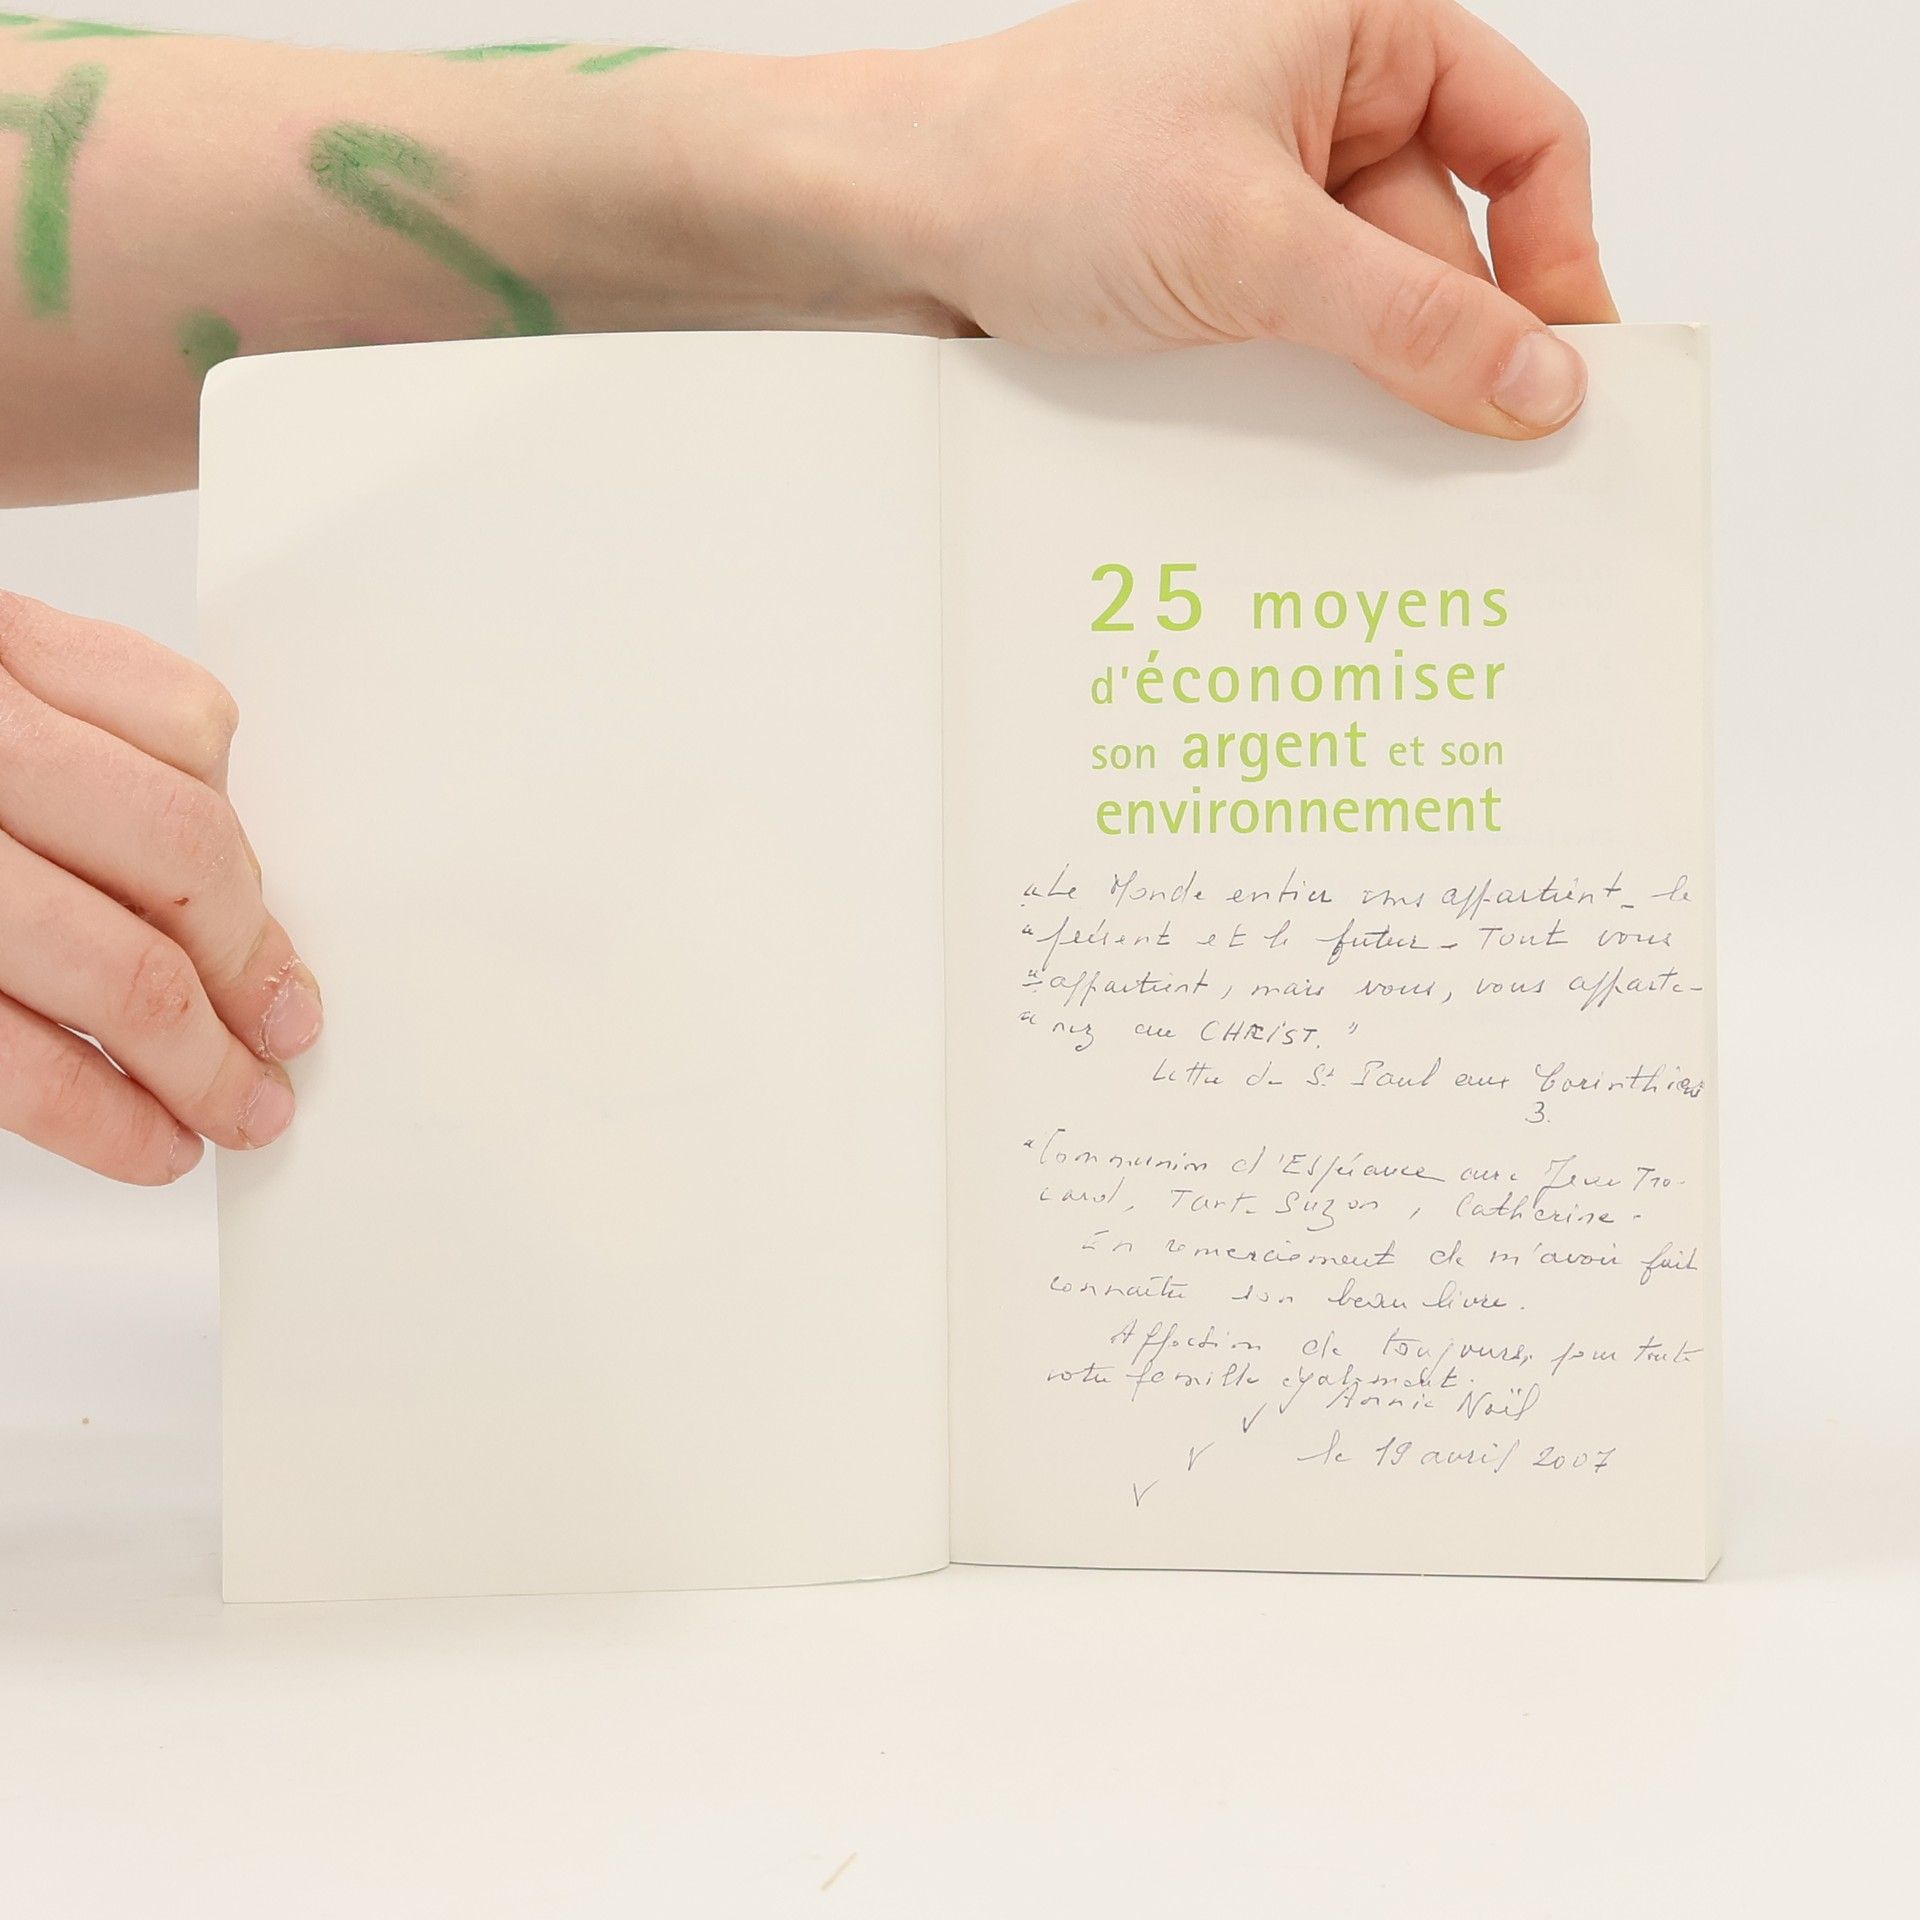 25 moyens
d'économiser
son argent et son
environnement
"Le Monde entier vous appartient_ le
"présent et le futur_ Tout vous
"appartient, mais vous, vous apparte-
"nez au CHRIST."
Lettre de St Paul aux Corinthiens
3.
"Communion d'Espérance avec Jean Tro-
card, Tart-Suzon, Catherine-
En remerciement de m'avoir fait
connaître son beau livre.
Affection de toujours, pour toute
votre famille également.
Annie Noël
le 19 avril 2007